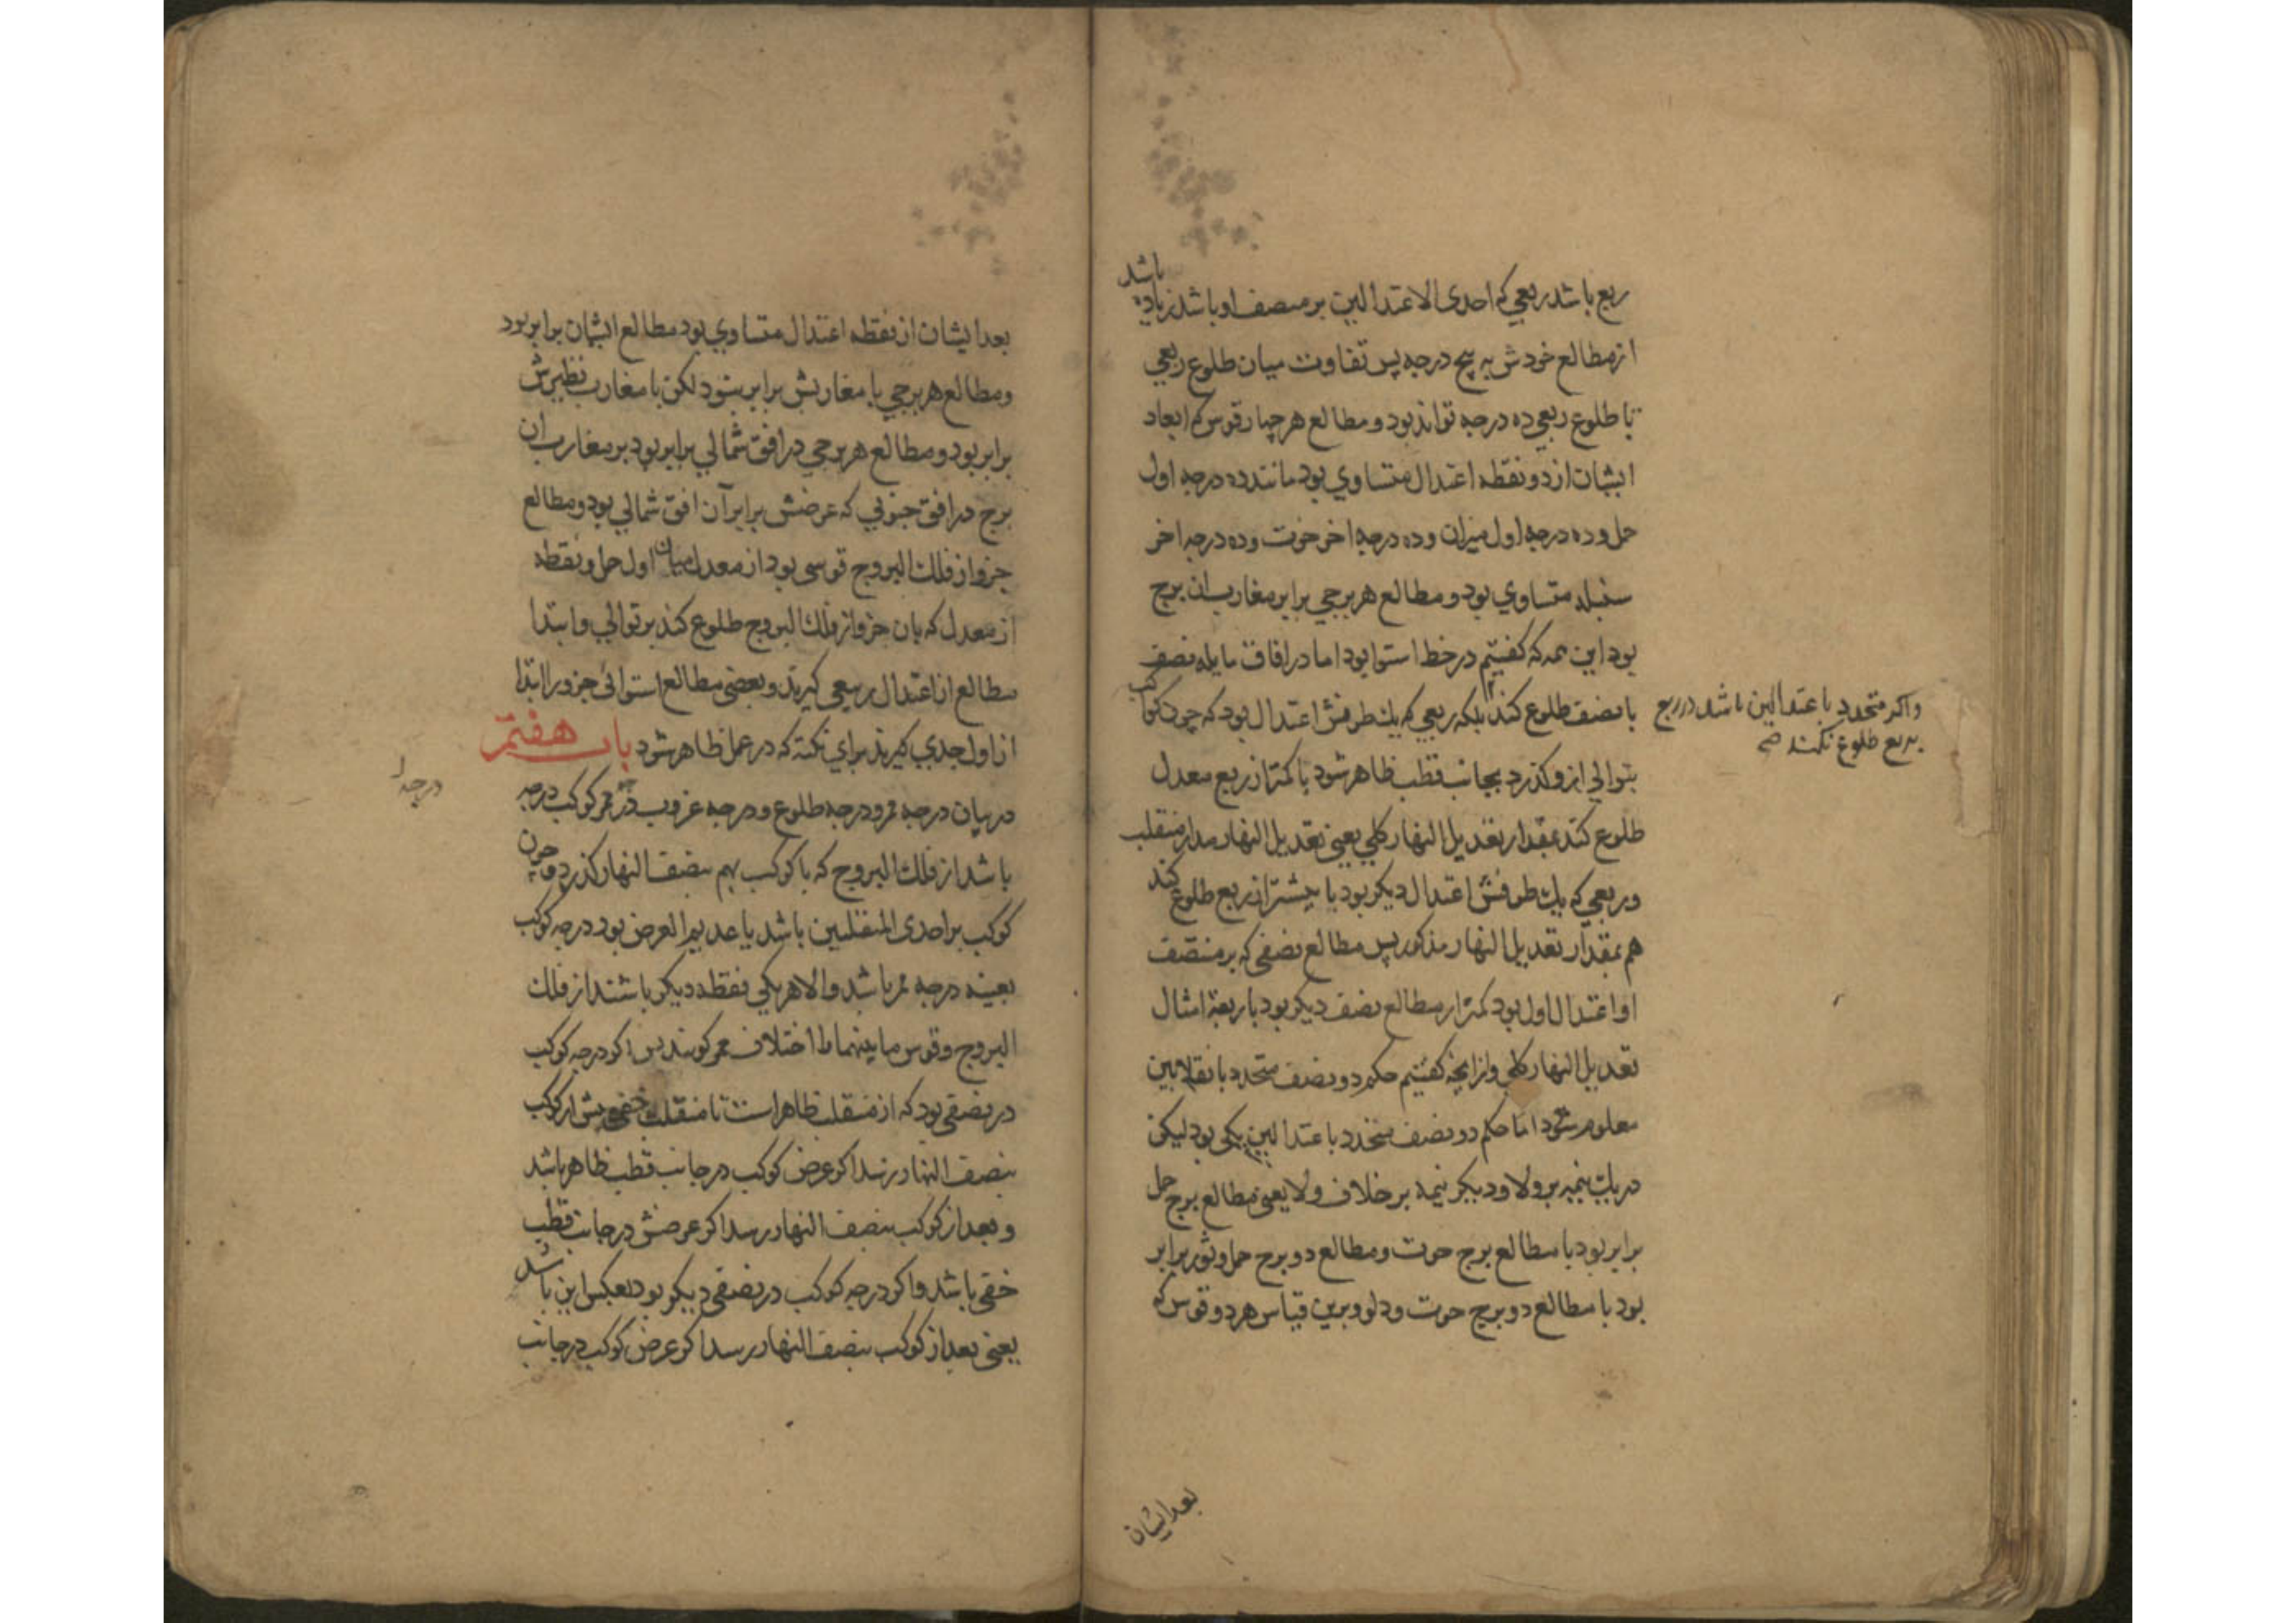 ربع باشد ربعی که احدی الاعتدالین بر منصف او باشد زیاده باشد
از مطالع خودش به پنج درجه پس تفاوت میان طلوع ربعی
تا طلوع ربعی ده درجه تواند بود و مطالع هر چهار قوس که ابعاد
ایشان از دو نقطه اعتدال متساوی بود مانند ده درجه اول
حمل و ده درجه اول میزان و ده درجه اخر حوت و ده درجه اخر
سنبله متساوی بود و مطالع هر برجی برابر مغارب ان برج
بود این همه که کفتیم در خط استوا بود اما در افاق مایله نصف
با نصف طلوع کند بلکه ربعی که یک طرفش اعتدال بود که چون کوکب
واکر متحدد باعتدالین باشد در ربع
بربع طلوع نکند صح
بتوالی ازو کذرد بجانب قطب ظاهر شود با کمتر از ربع معدل
طلوع کند بمقدار تعدیل النهار کلی یعنی تعدیل النهار مدار منقلب
و ربعی که یک طرفش اعتدال دیکر بود با بیشتر از ربع طلوع کند
هم بمقدار تعدیل النهار مذکور پس مطالع نصفی که بر منتصف
او اعتدال اول بود کمتر از مطالع نصف دیکر بود باربعة امثال
تعدیل النهار کلی و از انچه کفتیم حکم دو نصف متحدد بانقلابین
معلوم شود اما حکم دو نصف متحدد باعتدالین یکی بود لیکن
در یک نیمه بر ولا و دیکر نیمه بر خلاف ولا یعنی مطالع برج حمل
برابر بود با مطالع برج حوت و مطالع دو برج حمل و ثور برابر
بود با مطالع دو برج حوت و دلو و برین قیاس هر دو قوس که
بعد ایشان
بعد ایشان از نقطه اعتدال متساوی بود مطالع ایشان برابر بود
و مطالع هر برجی با مغاربش برابر نبود لکن با مغارب نظیرش
برابر بود و مطالع هر برجی در افق شمالی برابر بود بر مغارب ان
برج در افق جنوبی که عرضش برابر آن افق شمالی بود و مطالع
جزو از فلک البروج قوسی بود از معدل میان اول حمل و نقطه
از معدل که بان جزو از فلک البروج طلوع کند بر توالی و ابتدا
مطالع از اعتدال ربیعی کیرند و بعضی مطالع استوائی جزو را ابتدا
از اول جدی کیرند برای نکته که در عمل ظاهر شود باب هفتم
در بیان درجه ممر و درجه طلوع و درجه غروب درجه ممر کوکب درجه
درجه را
باشد از فلک البروج که با کوکب بهم بنصف النهار کذرد و چون
کوکب بر احدی المنقلبین باشد یا عدیم العرض بود درجه کوکب
بعینه درجه ممر باشد والا هر یکی نقطه دیکر باشند از فلک
البروج و قوس ما بینهما را اختلاف ممر کویند پس اکر درجه کوکب
در نصفی بود که از منقلب ظاهر است تا منقلب خفی پیش از کوکب
بنصف النهار رسد اکر عرض کوکب در جانب قطب ظاهر باشد
و بعد از کوکب بنصف النهار رسد اکر عرضش در جانب قطب
خفی باشد و اکر درجه کوکب در نصفی دیکر بود بعکس این باشد
یعنی بعد از کوکب بنصف النهار رسد اکر عرض کوکب در جانب